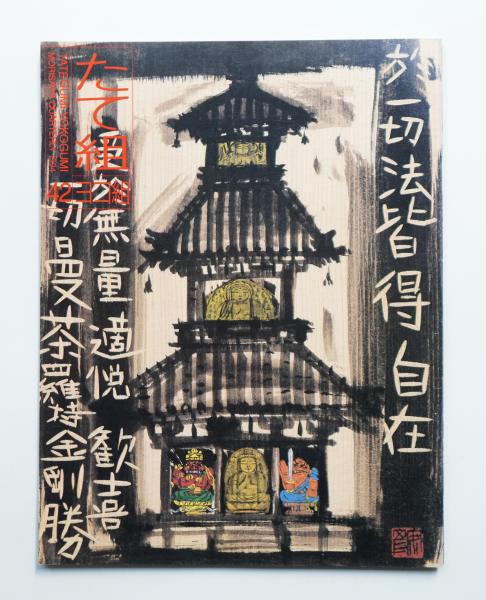 たて組
ヨコ組
TATEGUMI YOKOGUMI
MORISAWA QUARTERLY 1994
42
於一切法皆得自在
於無量適悦歓喜
切曼荼羅持金剛勝